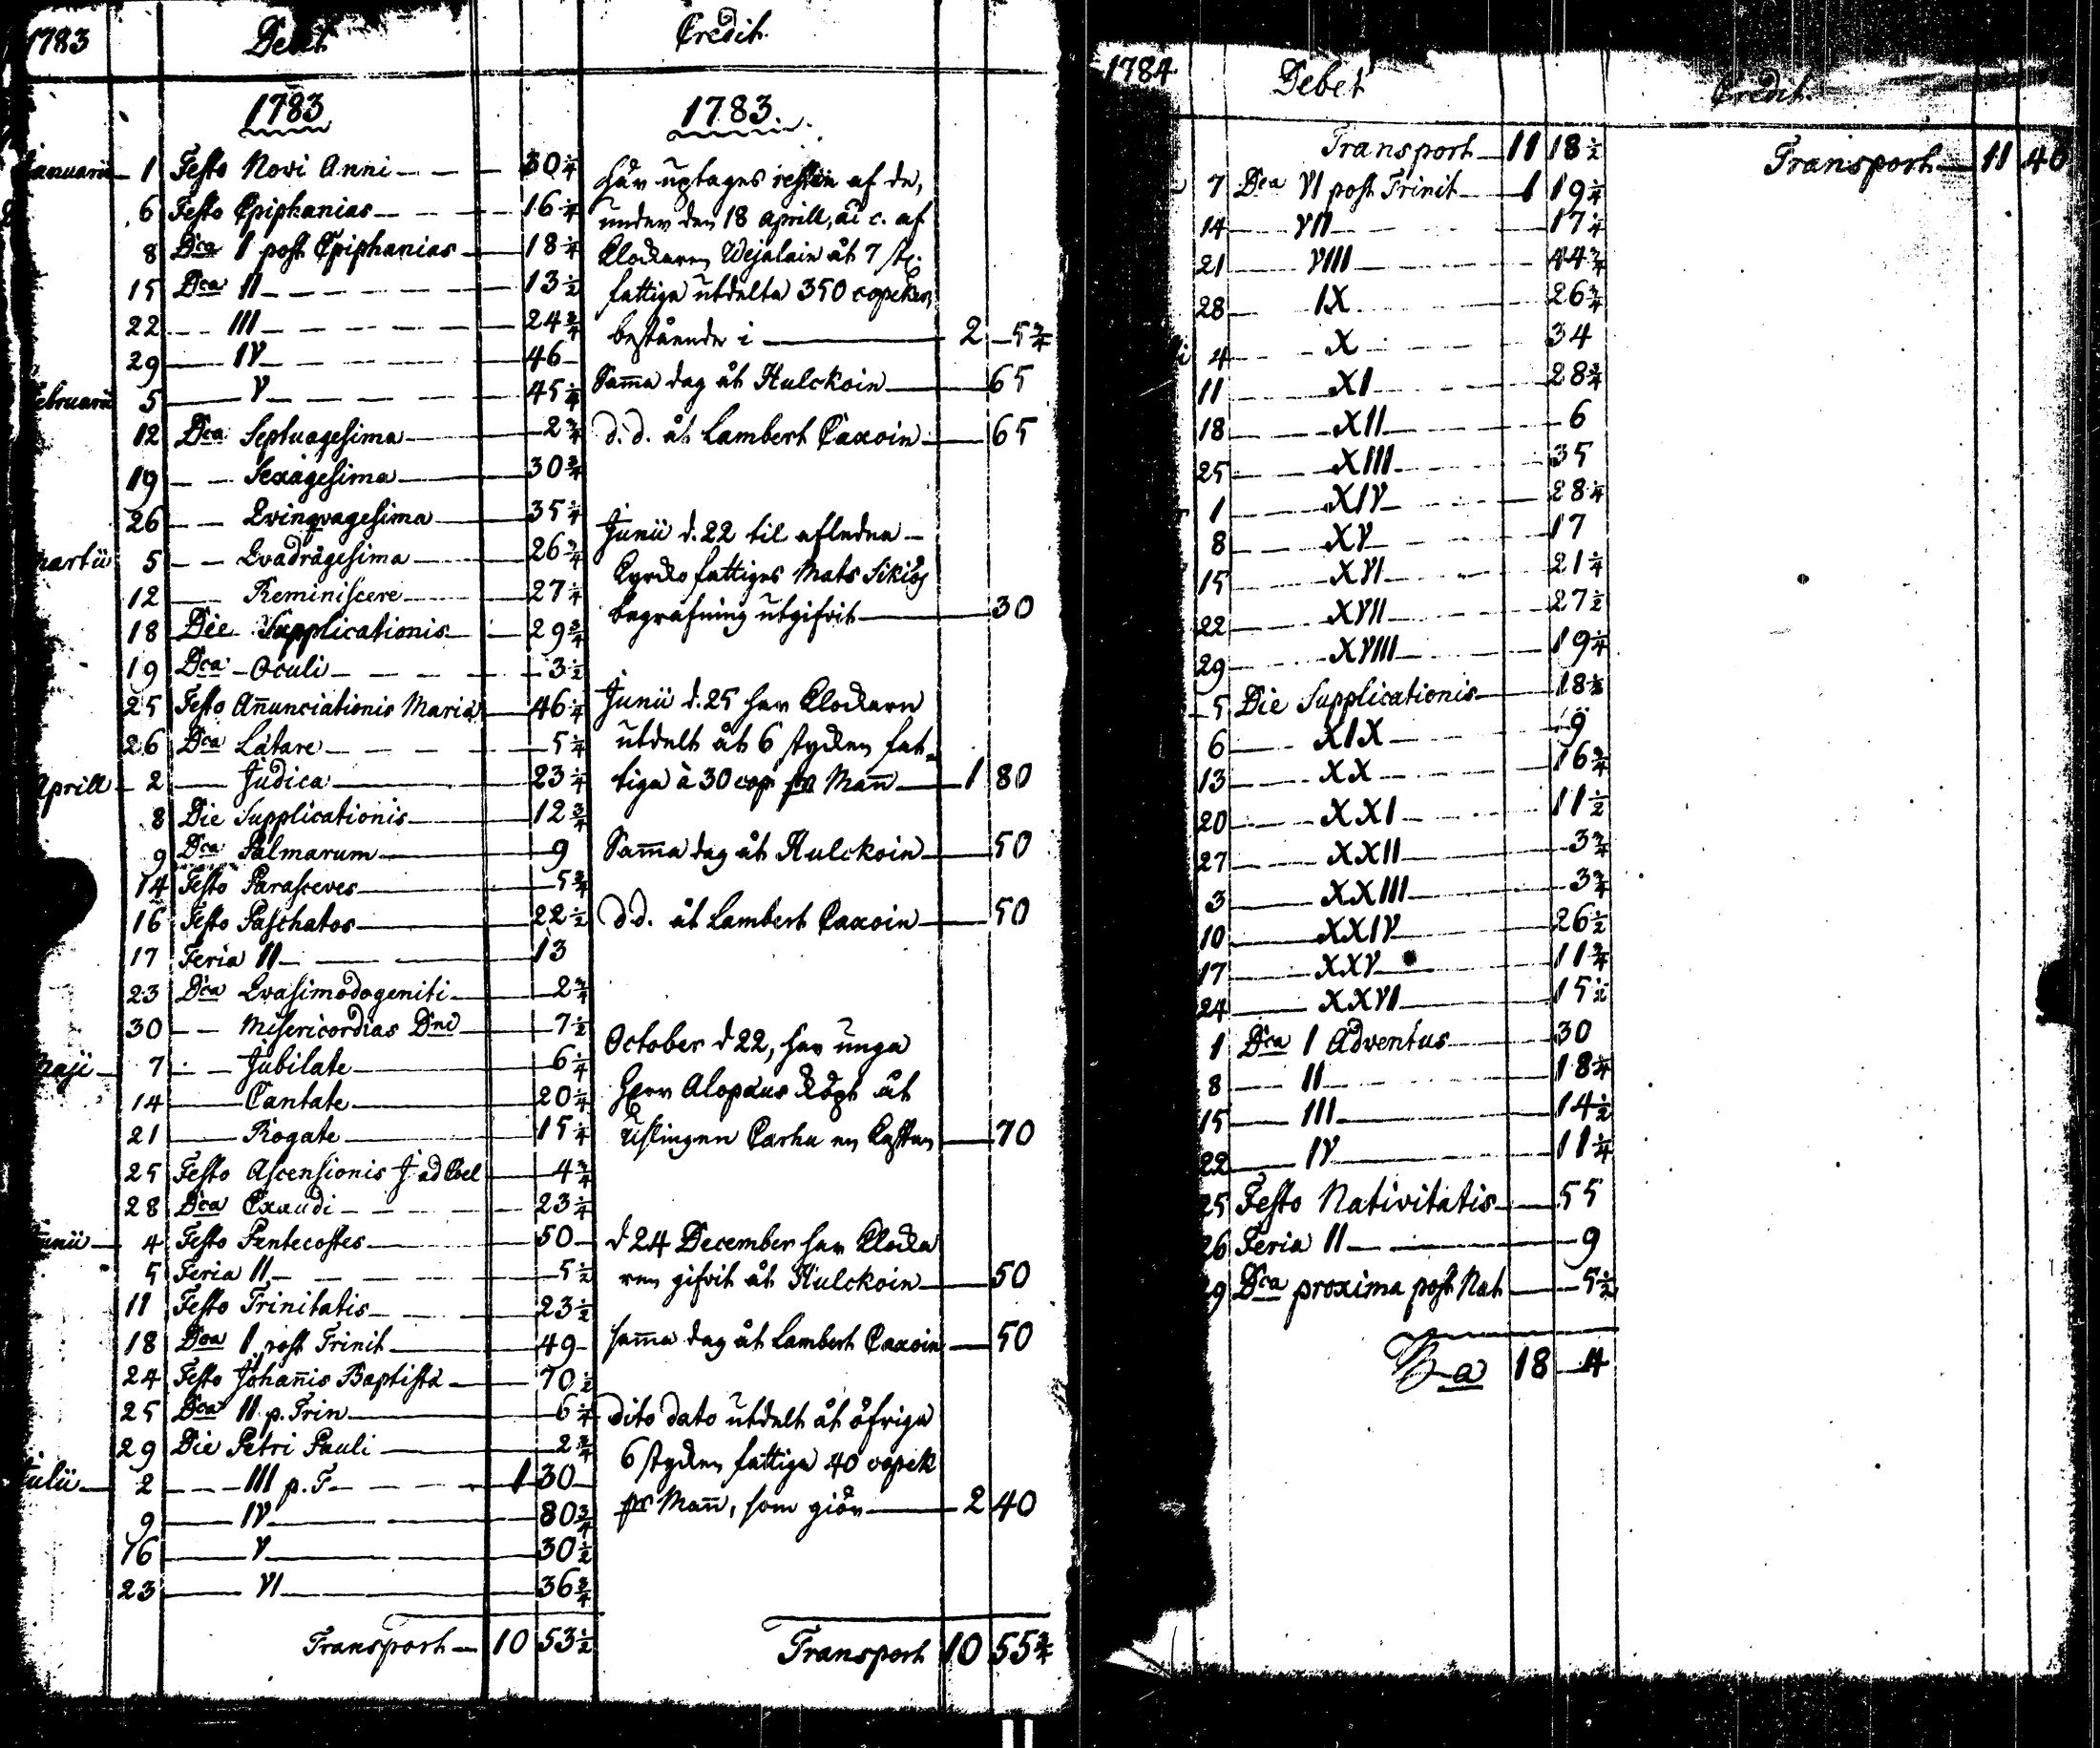 1783 Debet Credit
1783
Januarii 1 Festo Novi Anni 30 1/4
6 Festo Epiphanias 16 1/4
8 Dca 1 post Epiphanias 18 1/4
15 Dca II 13 1/2
22 III 24 3/4
29 IV 46
Februarii 5 V 45 1/4
12 Dca Septuagesima 2 3/4
19 Sexagesima 30 3/4
26 Qvinqvagesima 35 1/4
Martii 5 Qvadragesima 26 3/4
12 Reminiscere 27 1/4
18 Die Supplicationis 29 3/4
19 Dca Oculi 3 1/2
25 Festo Anunciationis Mariæ 46 1/4
26 Dca Lätare 5 1/4
Aprill 2 Judica 23 1/4
8 Die Supplicationis 12 3/4
9 Dca Palmarum 9
14 Festo Parasceves 5 3/4
16 Festo Paschatos 22 1/2
17 Feria II 13
23 Dca Qvasimodogeniti 2 3/4
30 Misericordias Dni 7 1/2
Maji 7 Jubilate 6 1/4
14 Cantate 20 1/4
21 Rogate 15 1/4
25 Festo Ascensionis J ad Coel 4 3/4
28 Dca Exaudi 23 1/4
Junii 4 Festo Pentecostes 50
5 Feria II 5 1/2
11 Festo Trinitatis 23 1/2
18 Dca 1 post Trinit 49
24 Festo Johannis Baptistä 70 1/2
25 Dca II p. Trin 6 1/4
29 Die Petri Pauli 2 3/4
Julii 2 III p. T 1 30
9 IV 80 3/4
16 V 30 1/2
23 VI 36 3/4
Transport 10 53 1/2
1783
Här uptages resten af de,
under den 18 Aprill, ai c. af
Klockaren Wejalain åt 7 st.
fattiga utdelta 350 copeker,
bestående i 2 5 3/4
Samma dag åt Hulckoin 65
d. d. åt Lambert Caxoin 65
Junii d. 22 til afledne
Kyrko fattiges Mats Sikiös
begrafning utgifvit 30
Junii d. 25 har Klockarn
utdelt åt 6 stycken fat=
tiga à 30 cop pr Man 1 80
Samma dag åt Hulckoin 50
d. d. åt Lambert Caxoin 50
October d 22, har unga
Herr Alopæus köpt åt
uslingen Carhu en Kaftan 70
d 24 December har Klocka
ren gifvit åt Hulckoin 50
samma dag åt Lambert Caxoin 50
dito dato utdelt åt öfriga
6 stycken fattiga 40 copek
pr Man, som giör 2 40
Transport 10 55 3/4
1784 Debet Credit.
Transport 11 18 1/2
7 Dca VI post Trinit 1 19 1/4
14 VII 17 1/4
21 VIII 44 3/4
28 IX 26 3/4
4 X 34
11 XI 28 3/4
18 XII 6
25 XIII 35
1 XIV 28 1/4
8 XV 17
15 XVI 21 1/4
22 XVII 27 1/2
29 XVIII 19 1/4
5 Die Supplicationis 18 1/2
6 XIX 9
13 XX 16 3/4
20 XXI 11 1/2
27 XXII 3 3/4
3 XXIII 3 3/4
10 XXIV 26 1/2
17 XXV 11 3/4
24 XXVI 15 1/2
1 Dca 1 Adventus 30
8 II 18 3/4
15 III 14 1/2
22 IV 11 1/4
25 Festo Nativitatis 55
26 Feria II 9
29 Dca proxima post Nat 5 1/2
18 4
Transport 11 40